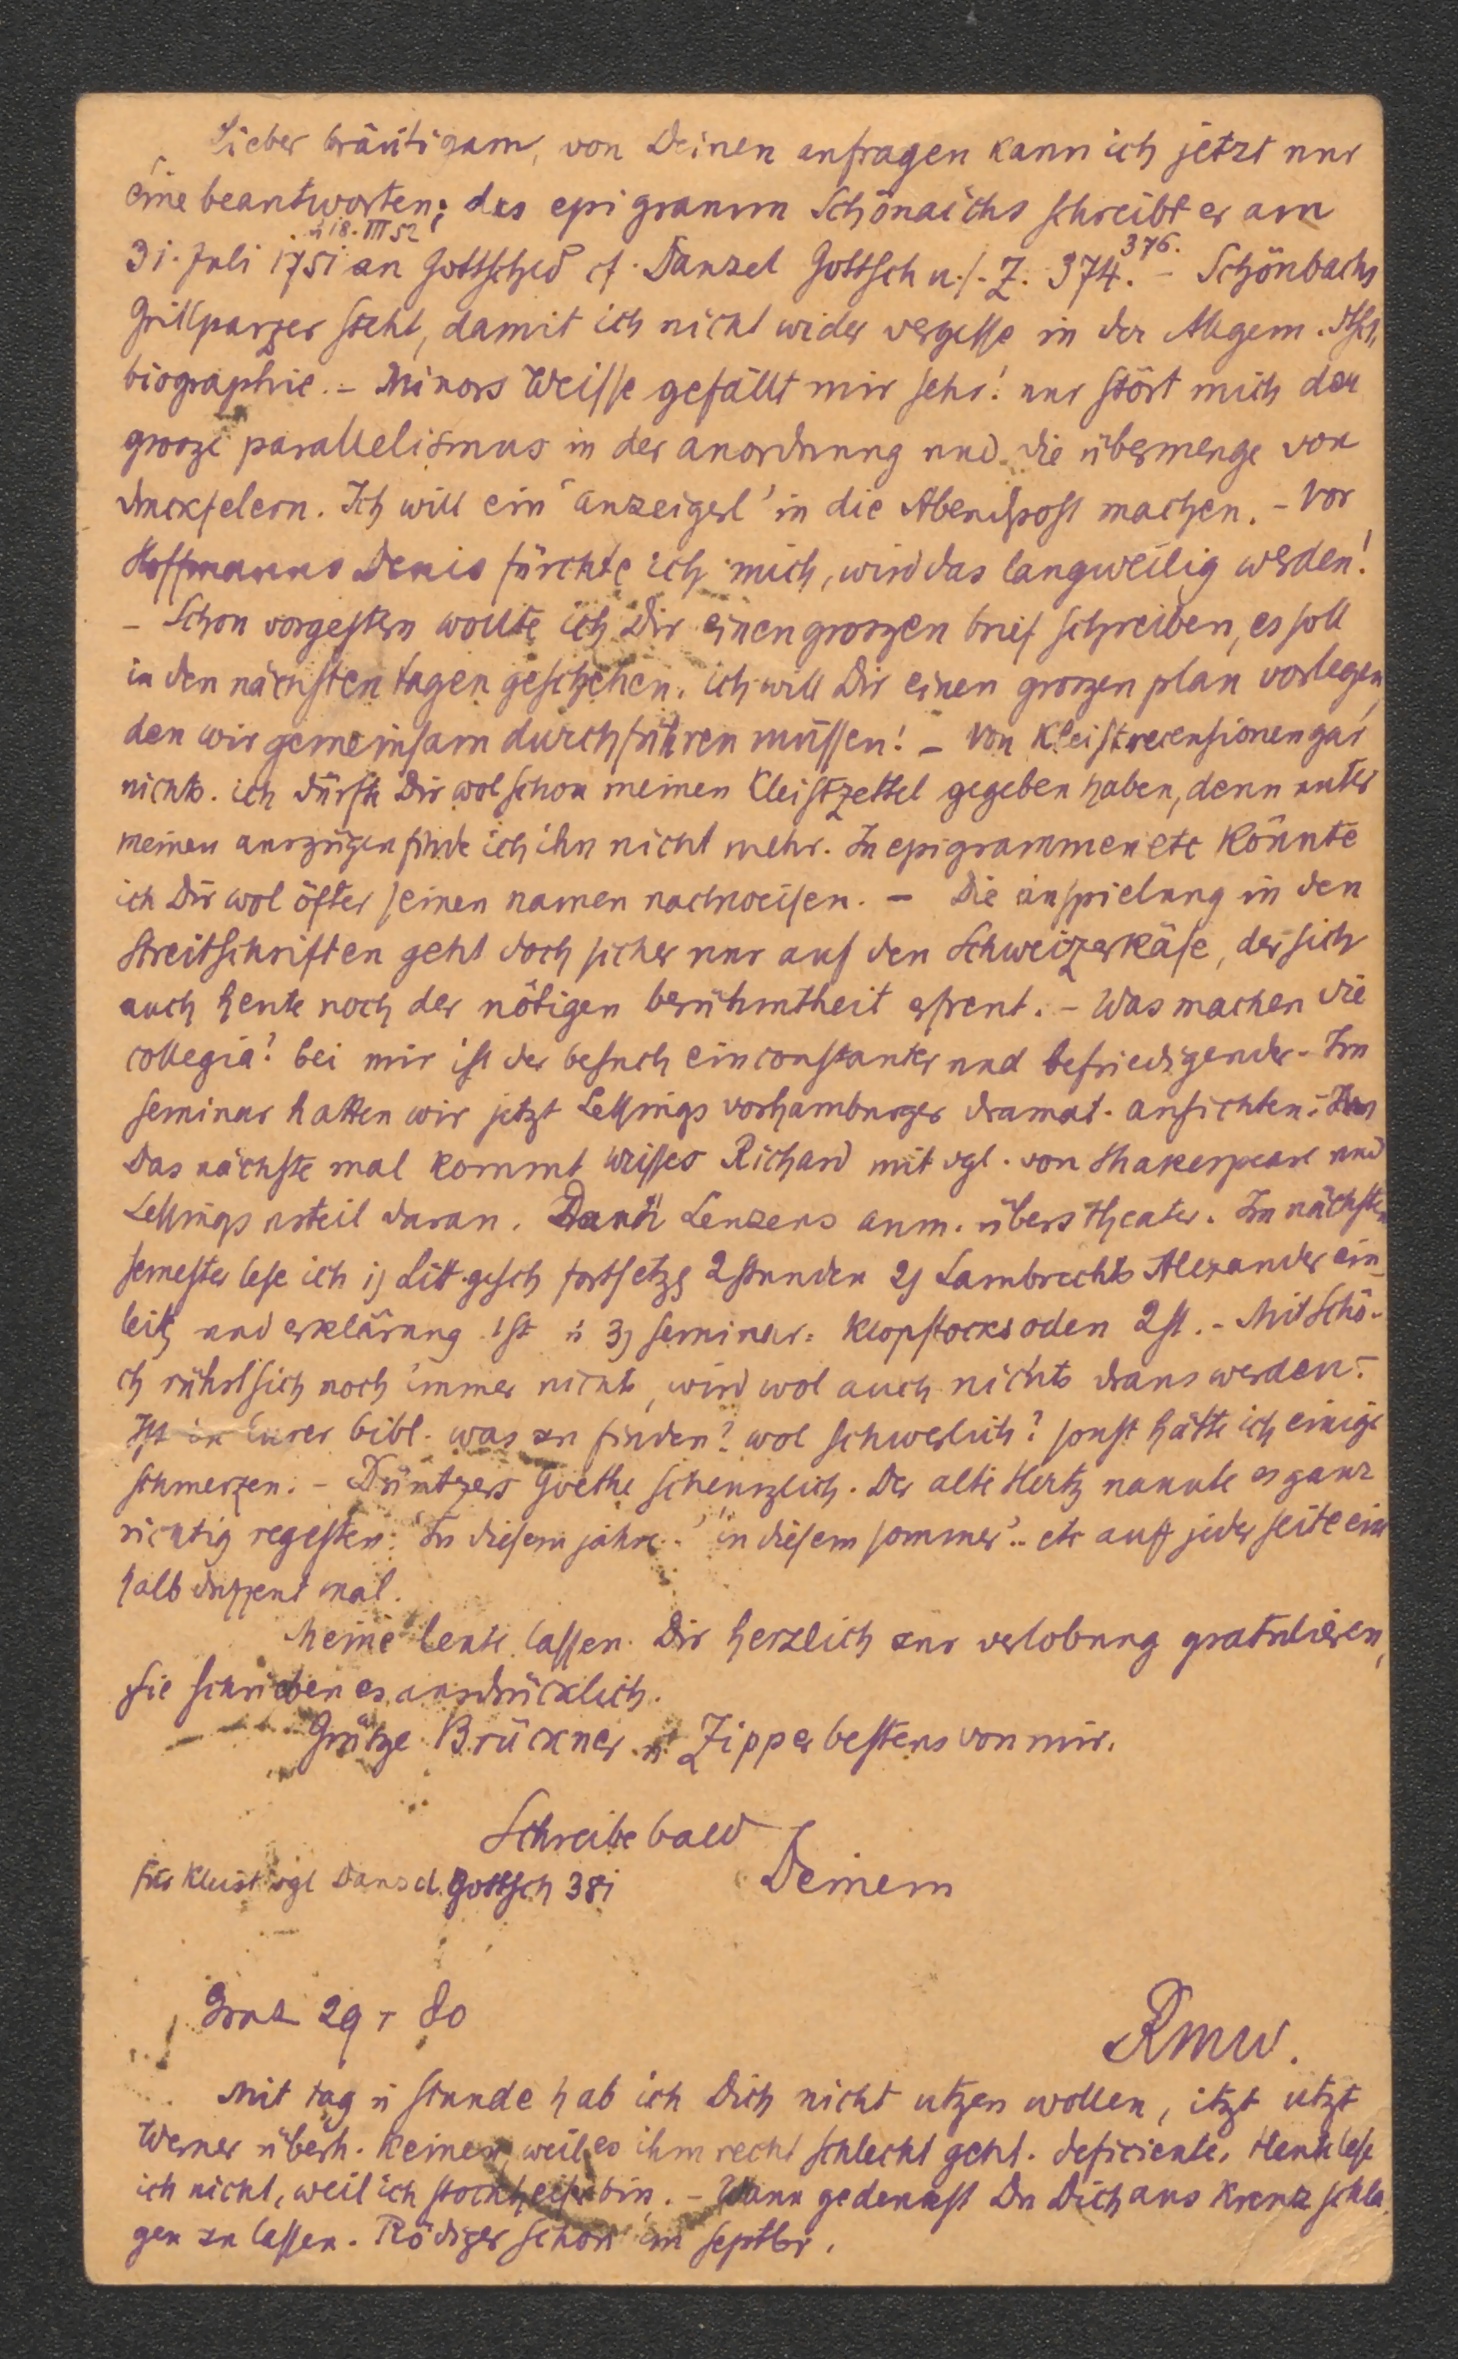 Lieber bräutigam, von Deinen anfragen kann ich jetzt nur
eine beantworten: das epigramm Schönaichs schreibt er am
31. Juli 1751 ü 18. III 52 an Gottsched cf. Danzel Gottsch u. s. Z. 374. 376. – Schönbachs
Grillparzer steht, damit ich nicht wider vergesse in der Allgem. dtsch.
biographie. – Minors Weisse gefällt mir sehr! nur stört mich der
grosze parallelismus in der anordnung und die übermenge von
druckfelern. Ich will ein 'anzeigerl' in die Abendpost machen. – Vor
Hoffmanns Denis fürchte ich mich, wird das langweilig werden!
– Schon vorgestern wollte ich Dir einen groszen brief schreiben, es soll
in den nächsten tagen geschehen. ich will Dir einen groszen plan vorlegen,
den wir gemeinsam durchführen müssen! – Von Kleistrecensionen gar
nichts. ich dürfte Dir wol schon meinen Kleistzettel gegeben haben, denn unter
meinen auszügen finde ich ihn nicht mehr. In epigrammen etc könnte
ich Dir wol öfter seinen namen nachweisen. – Die anspielung in den
Streitschriften geht doch sicher nur auf den Schweizerkäse, der sich
auch heute noch der nötigen berühmtheit erfreut. – Was machen die
collegia? bei mir ist der besuch ein constanter und befriedigender. – Im
seminar hatten wir jetzt Lessings vorhamburger dramat. ansichten.
Das nächste mal kommt Weisses Richard mit vgl. von Shakespeare und
Lessings urteil daran. Dann Lenzens anm. übers theater. Im nächsten
semester lese ich 1) Litt.gesch fortsetzg 2 stunden 2) Lambrechts Alexander ein-
leitg und erklärung 1 st ü 3) seminar: Klopstocks oden 2 st. – Mit Schö-
ch rührt sich noch immer nichts, wird wol auch nichts draus werden. –
Ist in Eurer bibl. was zu finden? wol schwerlich? sonst hätte ich einige
schmerzen. – Düntzers Goethe scheuszlich. Der alte Hertz nannte es ganz
richtig regesten: 'In diesem jahre..' 'in diesem sommer'.. etc auf jeder seite ein
halb dutzend mal.
Meine leute lassen Dir herzlich zur verlobung gratulieren,
sie schrieben es ausdrücklich.
Grüsze Brückner ü Zipper bestens von mir.
Schreibe bald
Deinem
für Kleist vgl Danzel Gottsch 381
Graz 29 I 80
RMW.
Mit tag ü stunde hab ich Dich nicht utzen wollen, itzt utzt
Werner überh. keinen, weil es ihm recht schlecht geht. deficiente. Heute lese
ich nicht, weil ich stockheiser bin. – Wann gedenkst Du Dich ans Kreuz schla-
gen zu lassen. Rödiger schon im septbr.